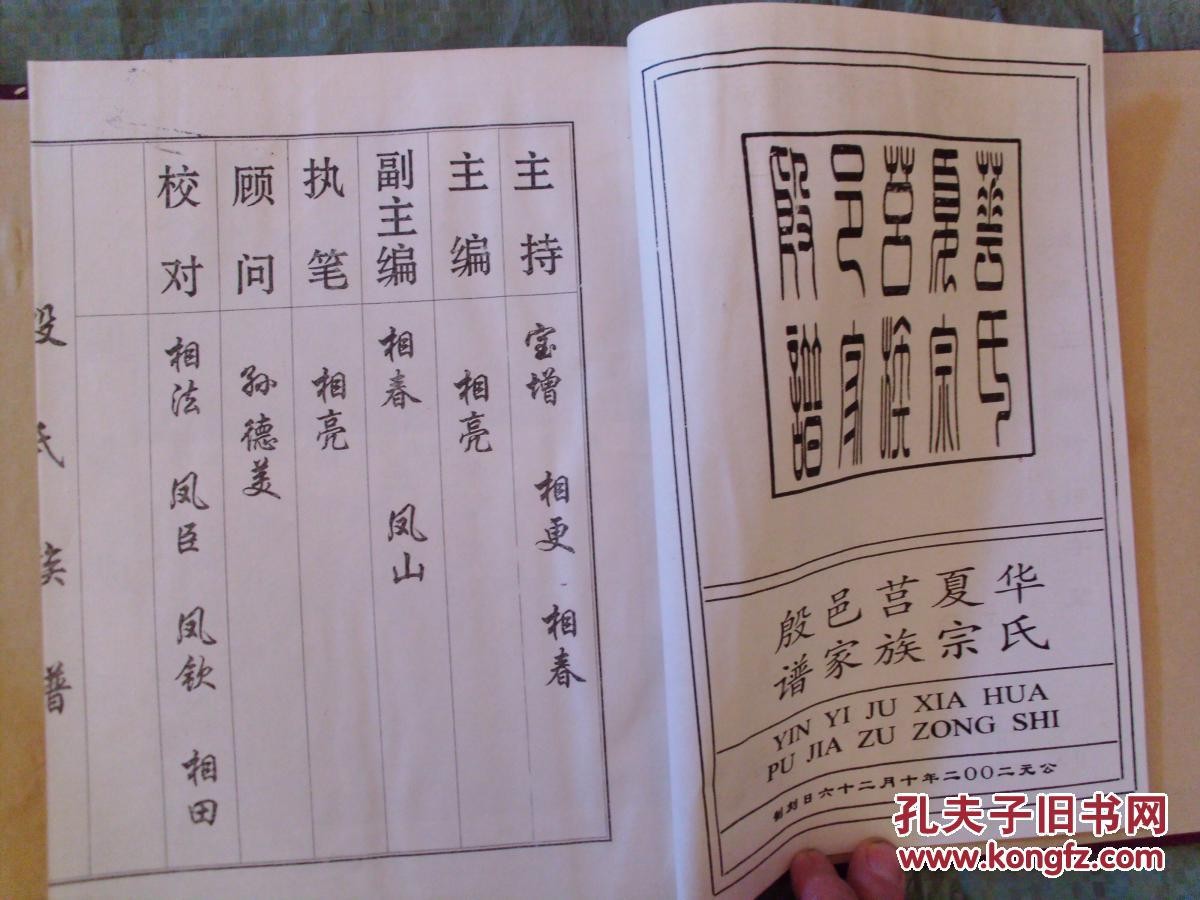 华氏
夏宗
莒族
邑家
殷谱
华氏
夏宗
莒族
邑家
殷谱
YIN YI JU XIA HUA
PU JIA ZU ZONG SHI
公元二〇〇二年十月二十六日刻制
主持 宝增 相更 相春
主编 相亮
副主编 相春 凤山
执笔 相亮
顾问 孙德美
校对 相法 凤臣 凤钦 相田
殷氏族谱
孔夫子旧书网
www.kongfz.com